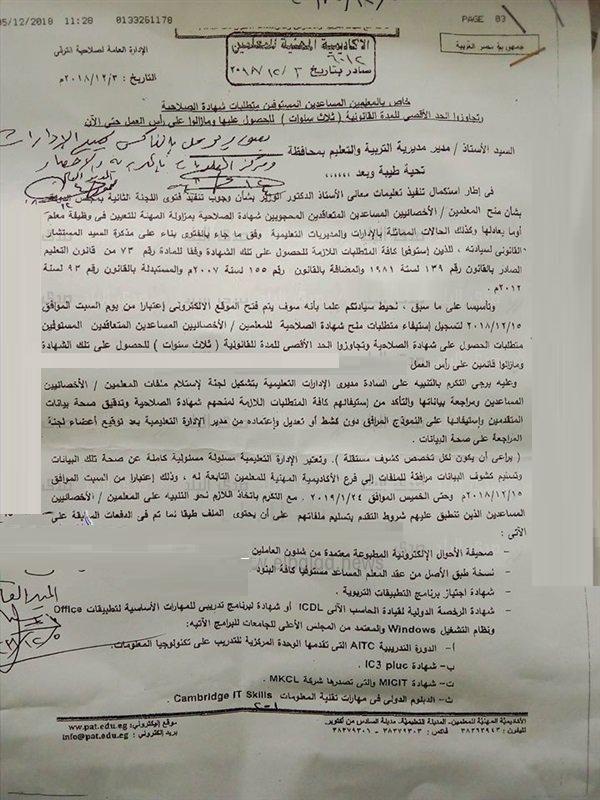 05/12/2018 11:28 0133251170 PAGE 03
جمهورية مصر العربية
الأكاديمية المهنية للمعلمين
صادر بتاريخ ٣ / ١٢ / ٢٠١٨
الإدارة العامة لصلاحية الترقى
التاريخ : ٢٠١٨/١٢/٣م
خاص بالمعلمين المساعدين المستوفين متطلبات شهادة الصلاحية
وتجاوزوا الحد الأقصى للمدة القانونية ( ثلاث سنوات ) للحصول عليها ومازالوا على رأس العمل حتى الآن
السيد الأستاذ / مدير مديرية التربية والتعليم بمحافظة
تحية طيبة وبعد ،،،،،
فى إطار استكمال تنفيذ تعليمات معالى الأستاذ الدكتور الوزير بشأن وجوب تنفيذ فتوى اللجنة الثانية بمجلس
بشأن منح المعلمين / الأخصائيين المساعدين المتعاقدين المحجوبين شهادة الصلاحية بمزاولة المهنة للتعيين فى وظيفة معلم
أو ما يعادلها وكذلك الحالات المماثلة بالإدارات والمديريات التعليمية وفق ما جاء بالفتوى بناء على مذكرة السيد المستشار
القانونى لسيادته ، للذين إستوفوا كافة المتطلبات اللازمة للحصول على تلك الشهادة وفقا للمادة رقم ٧٣ من قانون التعليم
الصادر بالقانون رقم ١٣٩ لسنة ١٩٨١ والمضافة بالقانون رقم ١٥٥ لسنة ٢٠٠٧م والمستبدلة بالقانون رقم ٩٣ لسنة
٢٠١٢م .
وتأسيسا على ما سبق ، نحيط سيادتكم علما بأنه سوف يتم فتح الموقع الالكترونى إعتبارا من يوم السبت الموافق
٢٠١٨/١٢/١٥ لتسجيل إستيفاء متطلبات منح شهادة الصلاحية للمعلمين / الأخصائيين المساعدين المتعاقدين المستوفين
متطلبات الحصول على شهادة الصلاحية وتجاوزوا الحد الأقصى للمدة القانونية ( ثلاث سنوات ) للحصول على تلك الشهادة
ومازالوا قائمين على رأس العمل
وعليه يرجى التكرم بالتنبيه على السادة مديرى الإدارات التعليمية بتشكيل لجنة لإستلام ملفات المعلمين / الأخصائيين
المساعدين ومراجعة بياناتها والتأكد من إستيفائهم كافة المتطلبات اللازمة لمنحهم شهادة الصلاحية وتدقيق صحة بيانات
المتقدمين وإستيفائها على النموذج المرافق دون كشط أو تعديل وإعتماده من مدير الإدارة التعليمية بعد توقيع أعضاء لجنة
المراجعة على صحة البيانات .
( يراعى أن يكون لكل تخصص كشوف مستقلة ) . وتعتبر الإدارة التعليمية مسئولة مسئولية كاملة عن صحة تلك البيانات
وتسليم كشوف البيانات مرافقة للملفات إلى فرع الأكاديمية المهنية للمعلمين التابعة له ، وذلك إعتبارا من السبت الموافق
٢٠١٨/١٢/١٥م وحتى الخميس الموافق ٢٠١٩/١/٢٤ . مع التكرم باتخاذ اللازم نحو التنبيه على المعلمين / الأخصائيين
المساعدين الذين تنطبق عليهم شروط التقدم بتسليم ملفاتهم على أن يحتوى الملف طبقا لما تم فى الدفعات السابقة على
الآتى :
– صحيفة الأحوال الإلكترونية المطبوعة معتمدة من شئون العاملين
– نسخة طبق الأصل من عقد المعلم المساعد مستوفيا كافة البنود
– شهادة اجتياز برنامج التطبيقات التربوية .
– شهادة الرخصة الدولية لقيادة الحاسب الآلى ICDL أو شهادة لبرنامج تدريبى للمهارات الأساسية لتطبيقات Office
ونظام التشغيل Windows والمعتمد من المجلس الأعلى للجامعات للبرامج الأتيه:
أ- الدورة التدريبية AITC التى تقدمها الوحدة المركزية للتدريب على تكنولوجيا المعلومات.
ب- شهادة IC3 pluc .
ت- شهادة MICIT والتى تصدرها شركة MKCL
ث- الدبلوم الدولى فى مهارات تقنية المعلومات Cambridge IT Skills .
الأكاديمية المهنية للمعلمين- المدينة التعليمية- مدينة السادس من أكتوبر.
موقع إليكترونى: www.pat.edu.eg
بريد إلكترونى: info@pat.edu.eg